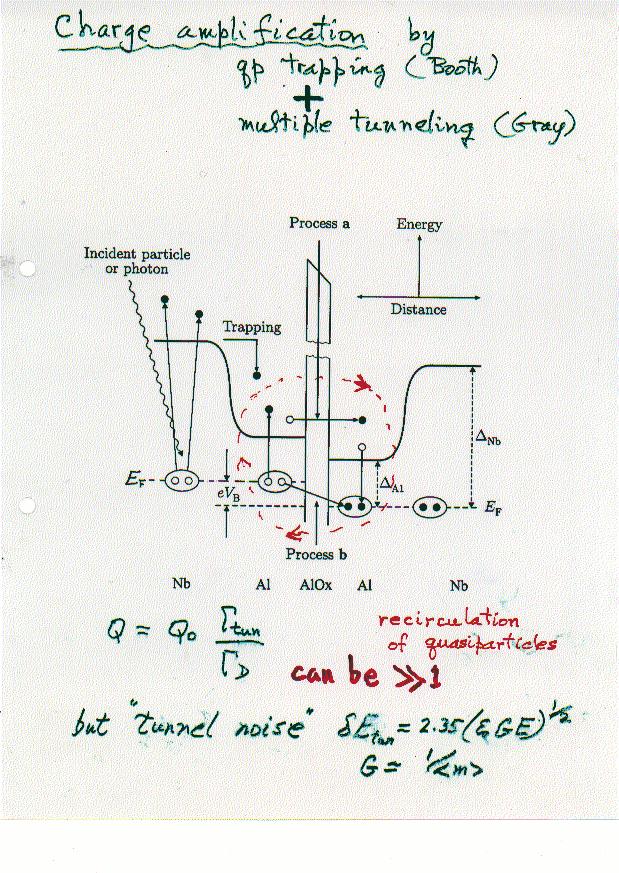 Charge amplification by
qp trapping (Booth)
+
multiple tunneling (Gray)
Process a
Energy
Incident particle
or photon
Distance
Trapping
Δ_Nb
E_F
eV_B
Δ_Al
E_F
Process b
Nb Al AlOx Al Nb
Q = Q_0 Γ_tun / Γ_D
recirculation
of quasiparticles
can be ≫1
but "tunnel noise" δE_tun = 2.35(εGE)^1/2
G = 1/<m>